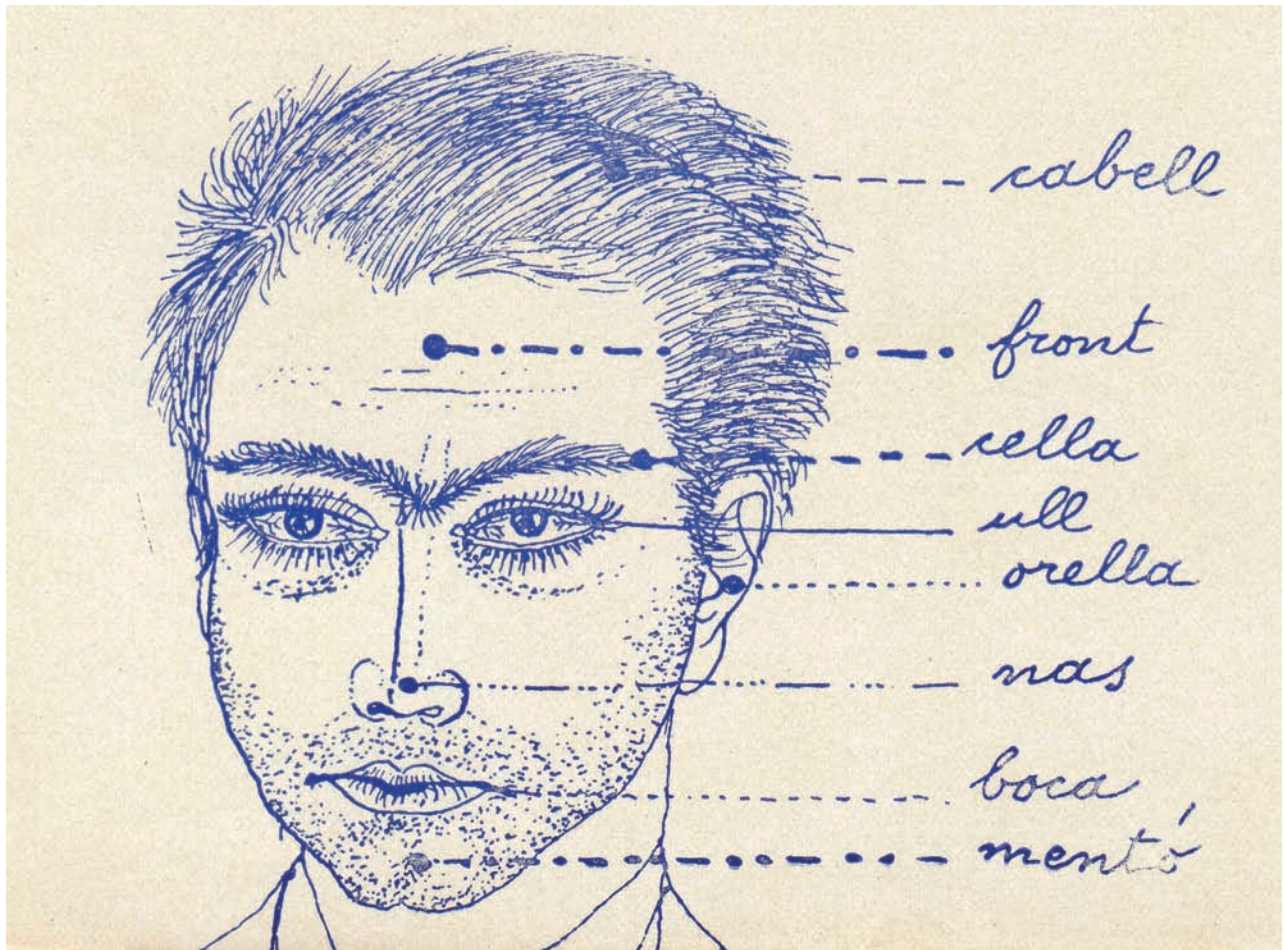 cabell
front
cella
ull
orella
nas
boca
mentó